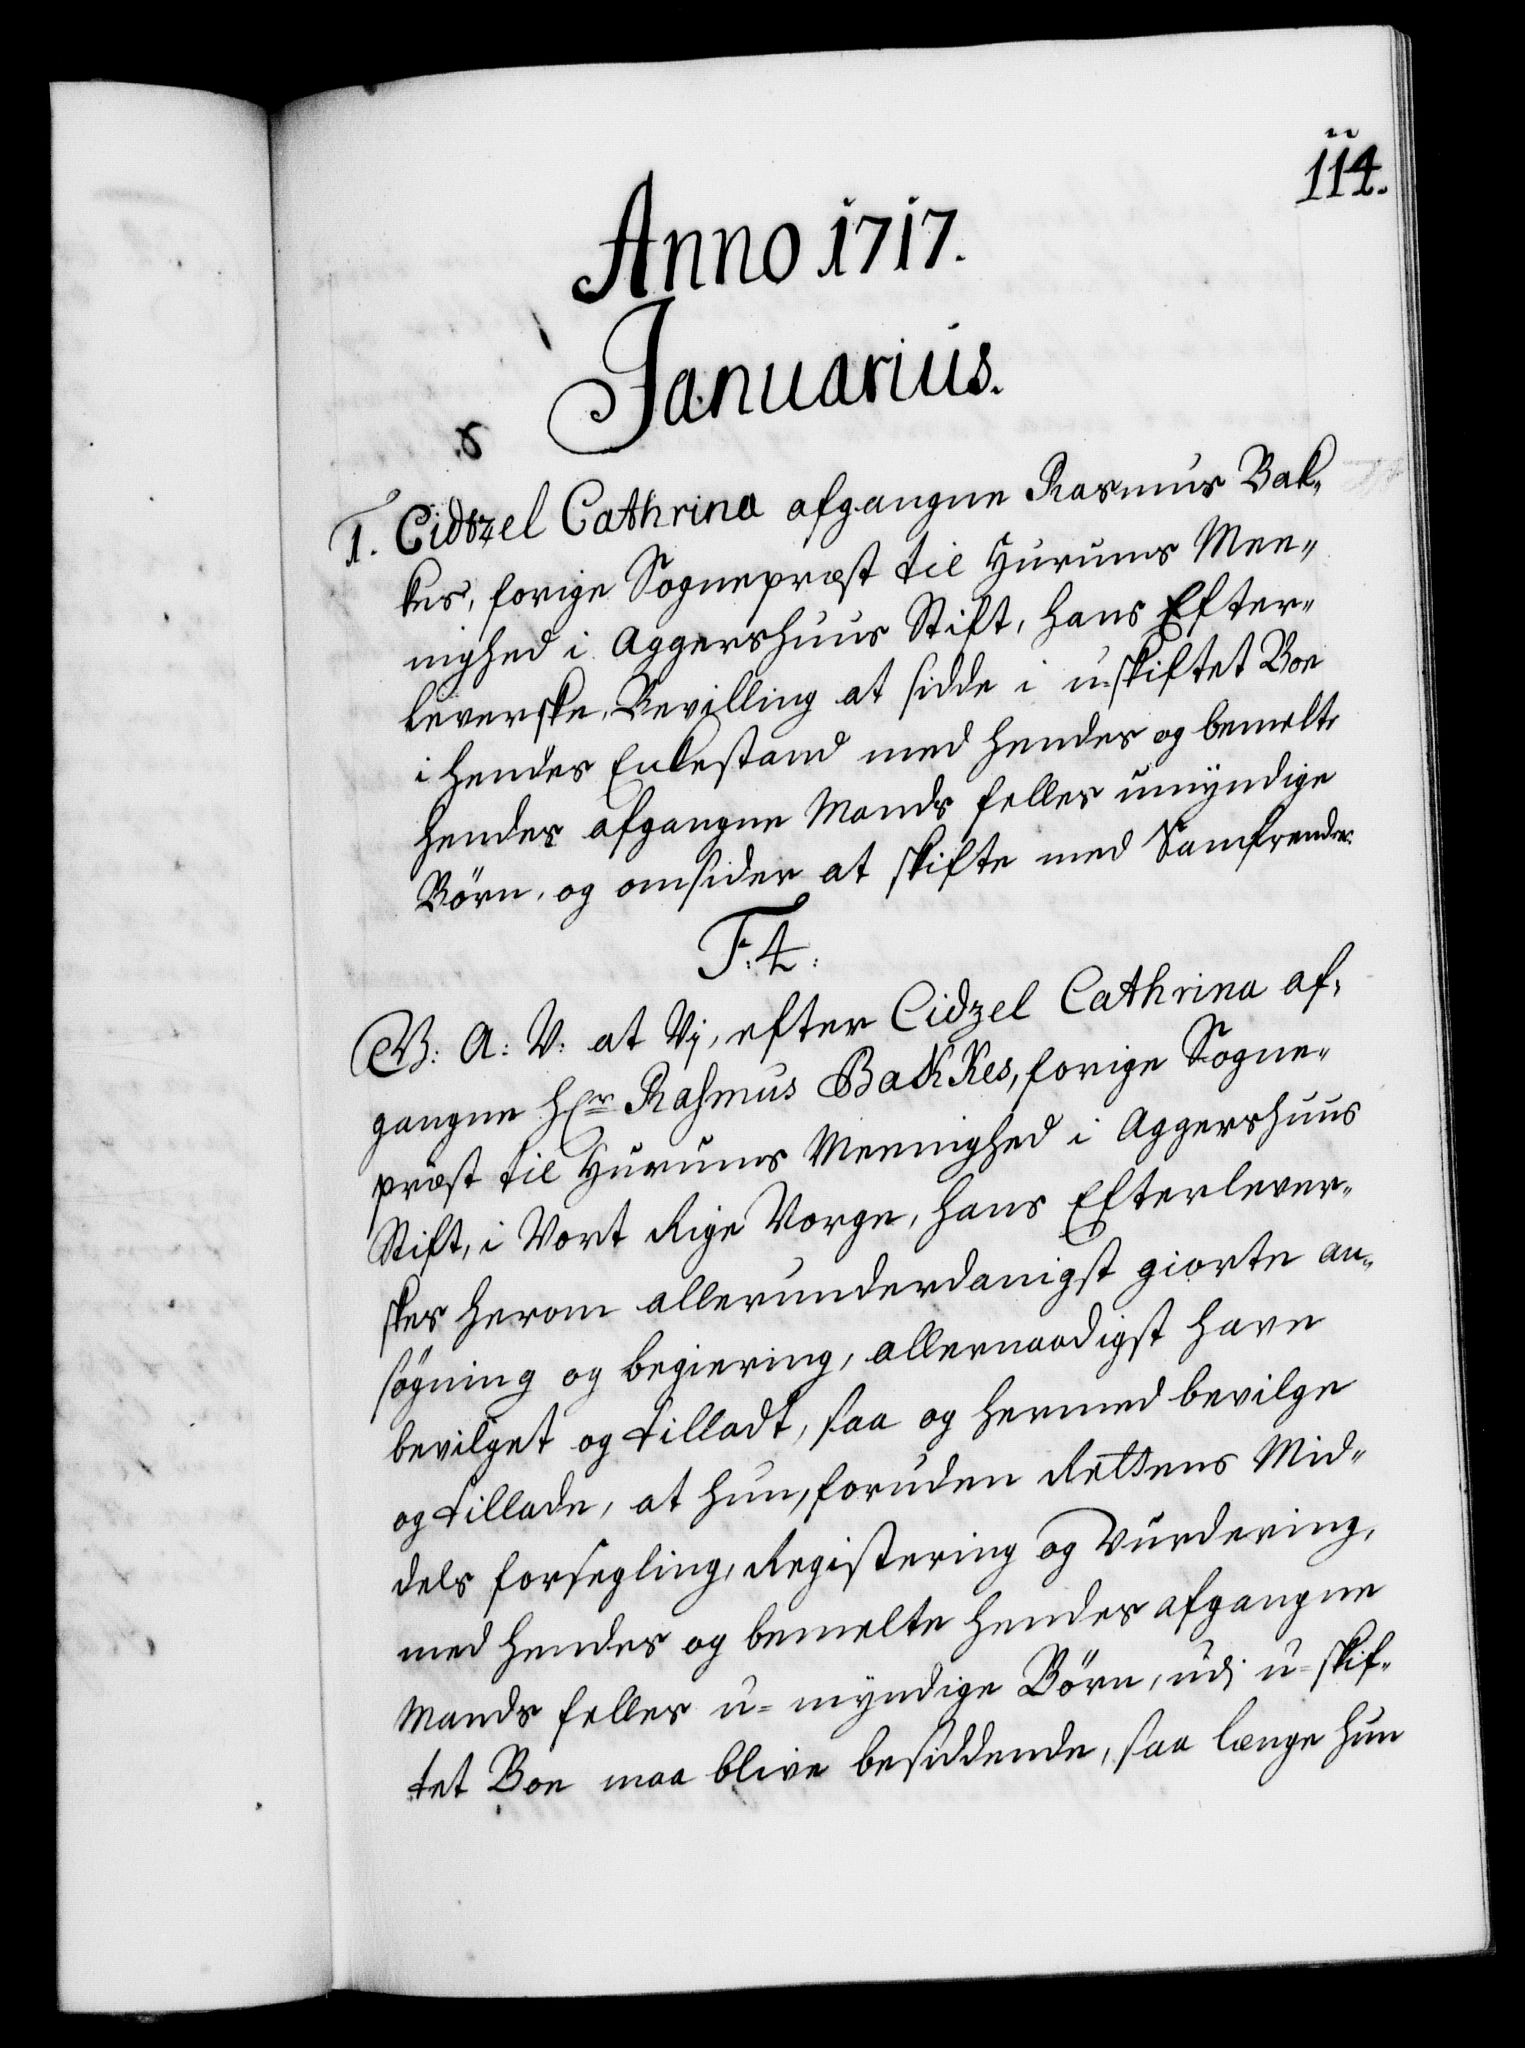 114.
Anno 1717.
Januarius.
1. Cidzel Cathrina afgangne Rasmus Bak„
kes, forige Sognepræst til Hurums Mee„
nighed i Aggershuus Stift, hans Efter„
leverske, Bevilling at sidde i u-skiftet Boe
i hendes Enkestand med hendes og bemelte
hendes afgangne Mands felles umyndige
Börn, og omsider at skifte med Samfrender.
F: 4:
G. A: V: at Vj, efter Cidzel Cathrina af„
gangne Hr Rasmus Bakkes, forige Sogne„
præst til Hurums Meenighed i Aggershuus
Stift, i Vort Rige Norge, hans Efterlever„
skes herom allerunderdanigst giorte an„
sögning og begiering, allernaadigst have
bevilget og tilladt, saa og hermed bevilge
og tillade, at hun, foruden Rettens Mid„
dels forsegling, Registering og Vurdering,
med hendes og bemelte hendes afgangne
Mands felles u-myndige Börn, udj u-skif„
tet Boe maa blive besiddende, saa længe hun